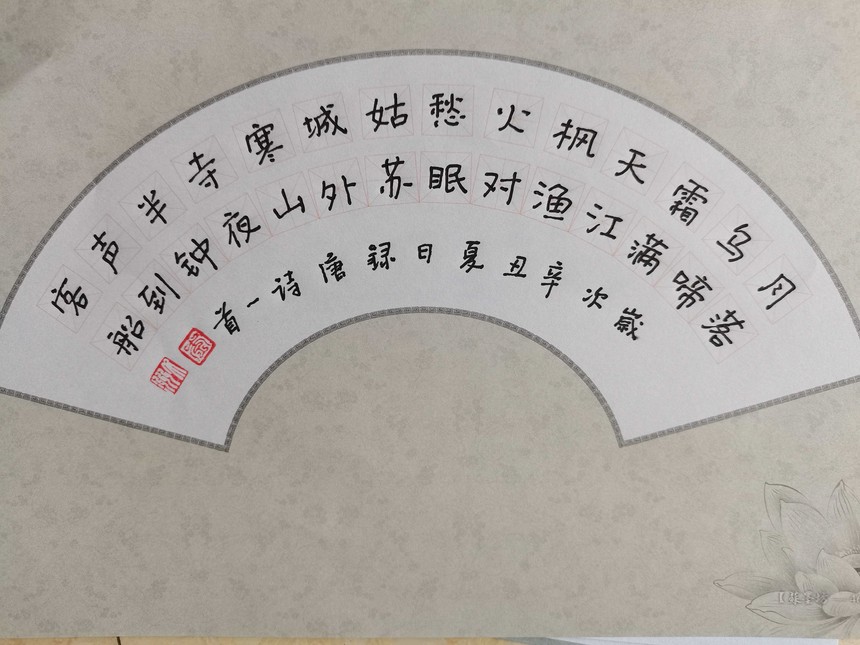 月落
乌啼
霜满
天江
枫渔
火对
愁眠
姑苏
城外
寒山
寺夜
半钟
声到
客船
歲次辛丑夏日録唐诗一首